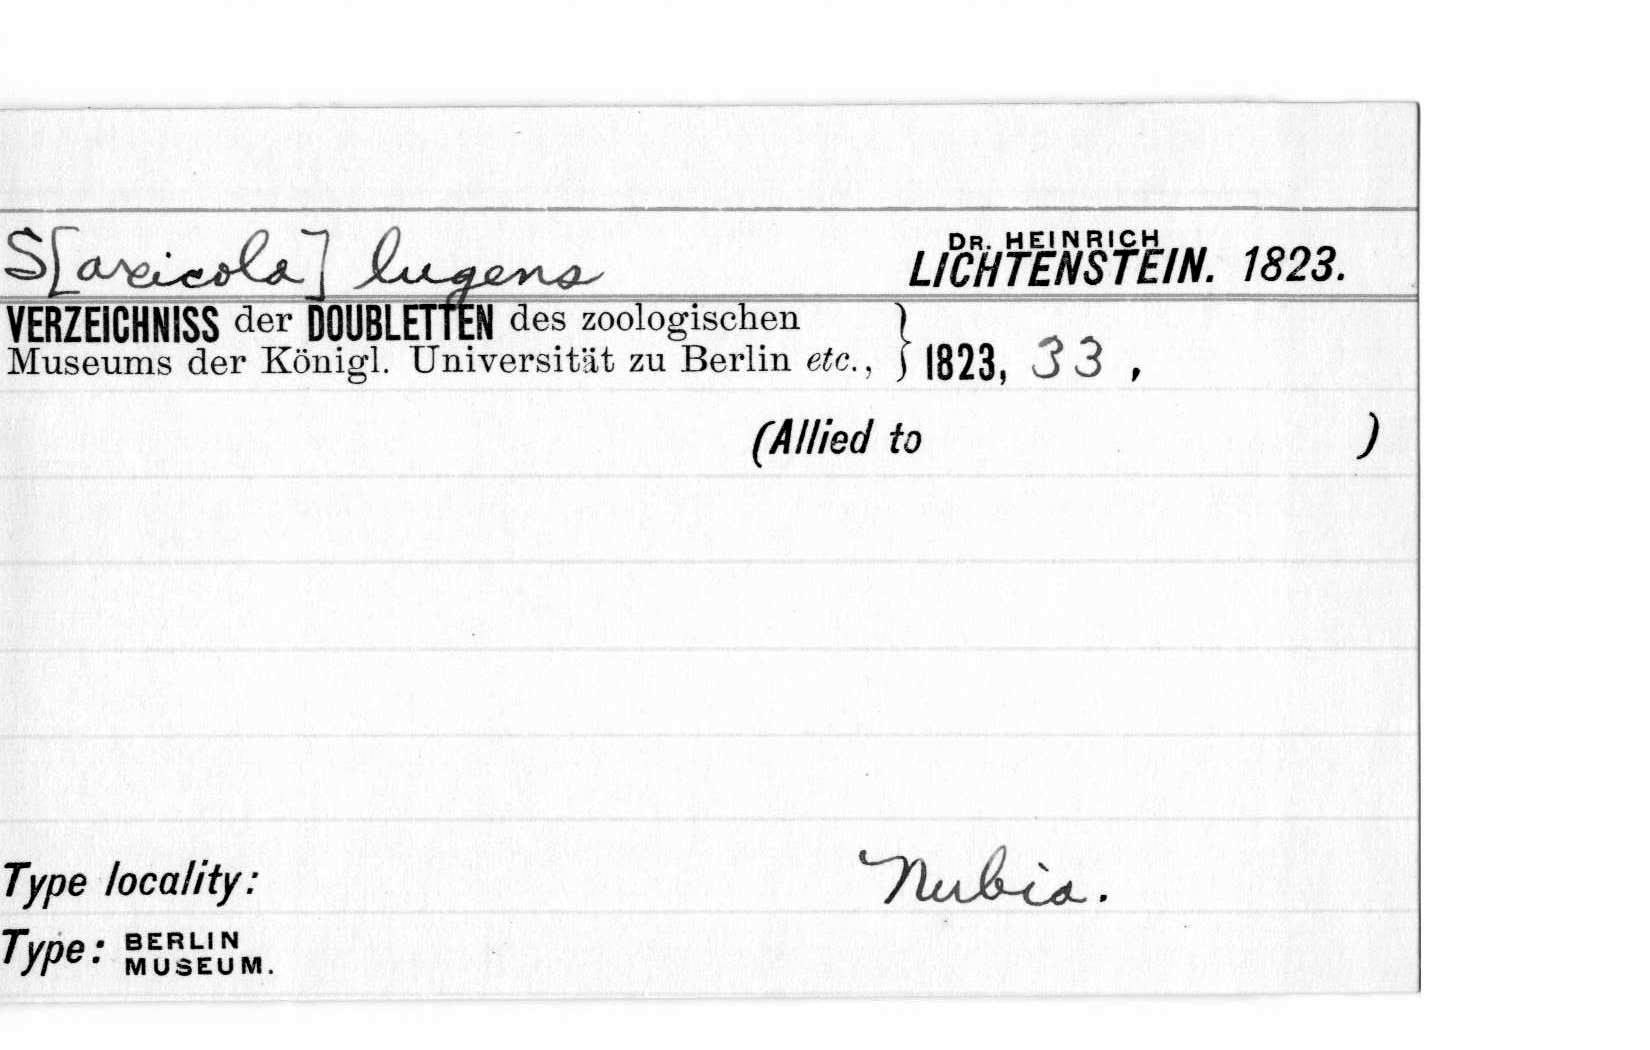 S[axicola] lugens
DR. HEINRICH
LICHTENSTEIN. 1823.
VERZEICHNISS der DOUBLETTEN des zoologischen
Museums der Königl. Universität zu Berlin etc., } 1823, 33 ,
(Allied to )
Type locality: Nubia.
Type: BERLIN
MUSEUM.